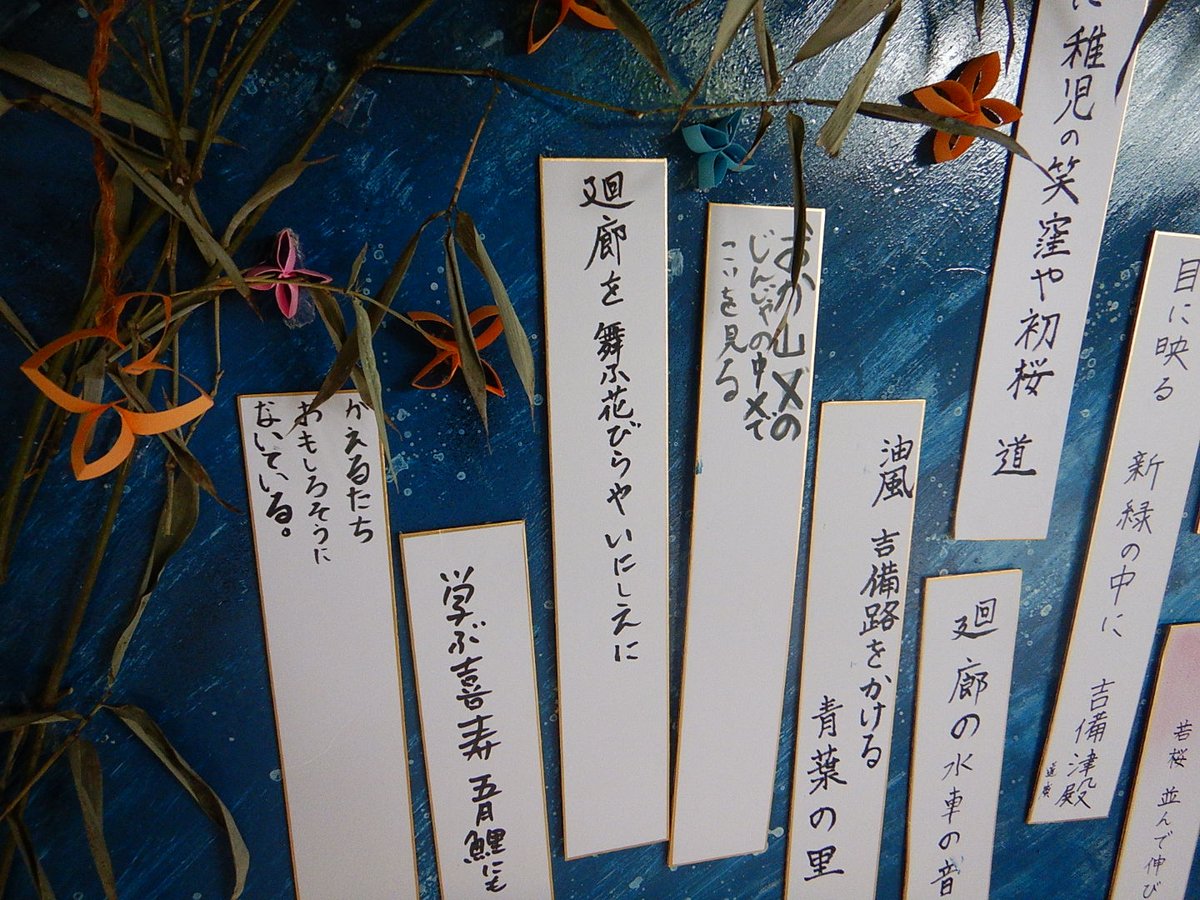 若桜 並んで伸び
目に映る 新緑の中に 吉備津殿
稚児の笑窪や初桜 道
廻廊の水車の音
油風 吉備路をかける
青葉の里
おか山の
じんじゃの中で
こいを見る
廻廊を 舞ふ花びらや いにしえに
学ぶ喜寿 五月鯉にも
がえるたち
おもしろそうに
ないている。